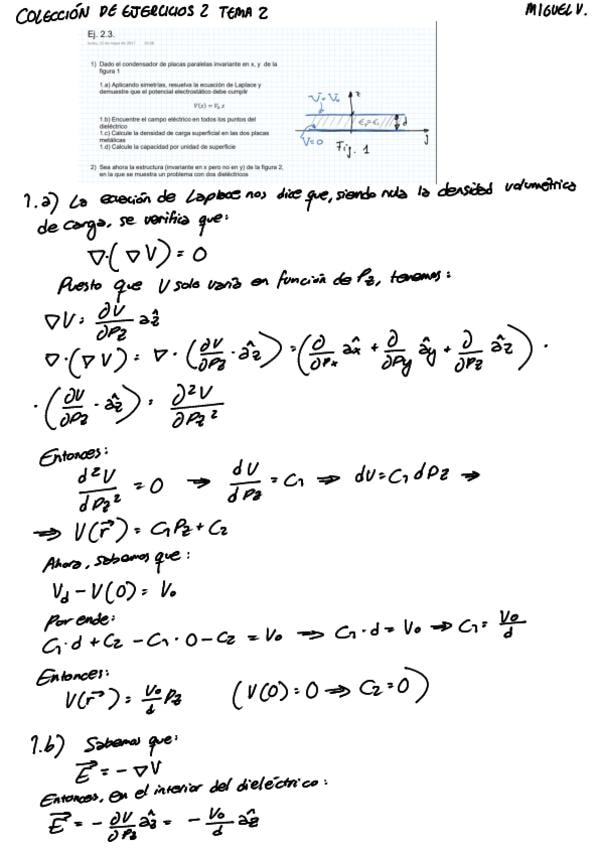 COLECCIÓN DE EJERCICIOS 2 TEMA 2
MIGUEL V.
Ej. 2.3.
1) Dado el condensador de placas paralelas invariante en x, y de la
figura 1
1.a) Aplicando simetrías, resuelva la ecuación de Laplace y
demuestre que el potencial electrostático debe cumplir
1.b) Encuentre el campo eléctrico en todos los puntos del
dieléctrico
1.c) Calcule la densidad de carga superficial en las dos placas
metálicas
1.d) Calcule la capacidad por unidad de superficie
2) Sea ahora la estructura (invariante en x pero no en y) de la figura 2,
en la que se muestra un problema con dos dieléctricos
V=V₀
z
d
V=0
Fig. 1
1.a) La ecuación de Laplace nos dice que, siendo nula la densidad volumétrica
de carga, se verifica que:
∇·(∇V) = 0
Puesto que V solo varía en función de Pz, tenemos:
∇V = ∂V/∂Pz âz
∇·(∇V) = ∇·(∂V/∂Pz · âz) = (∂/∂Px âx + ∂/∂Py ây + ∂/∂Pz âz) ·
· (∂V/∂Pz · âz) = ∂²V/∂Pz²
Entonces:
d²V/dPz² = 0 → dV/dPz = C₁ ⇒ dV = C₁ dPz ⇒
⇒ V(r⃗) = C₁Pz + C₂
Ahora, sabemos que:
Vd − V(0) = V₀
Por ende:
C₁·d + C₂ − C₁·0 − C₂ = V₀ ⇒ C₁·d = V₀ ⇒ C₁ = V₀/d
Entonces:
V(r⃗) = V₀/d Pz (V(0) = 0 ⇒ C₂ = 0)
1.b) Sabemos que:
E⃗ = −∇V
Entonces, en el interior del dieléctrico:
E⃗ = −∂V/∂Pz âz = −V₀/d âz